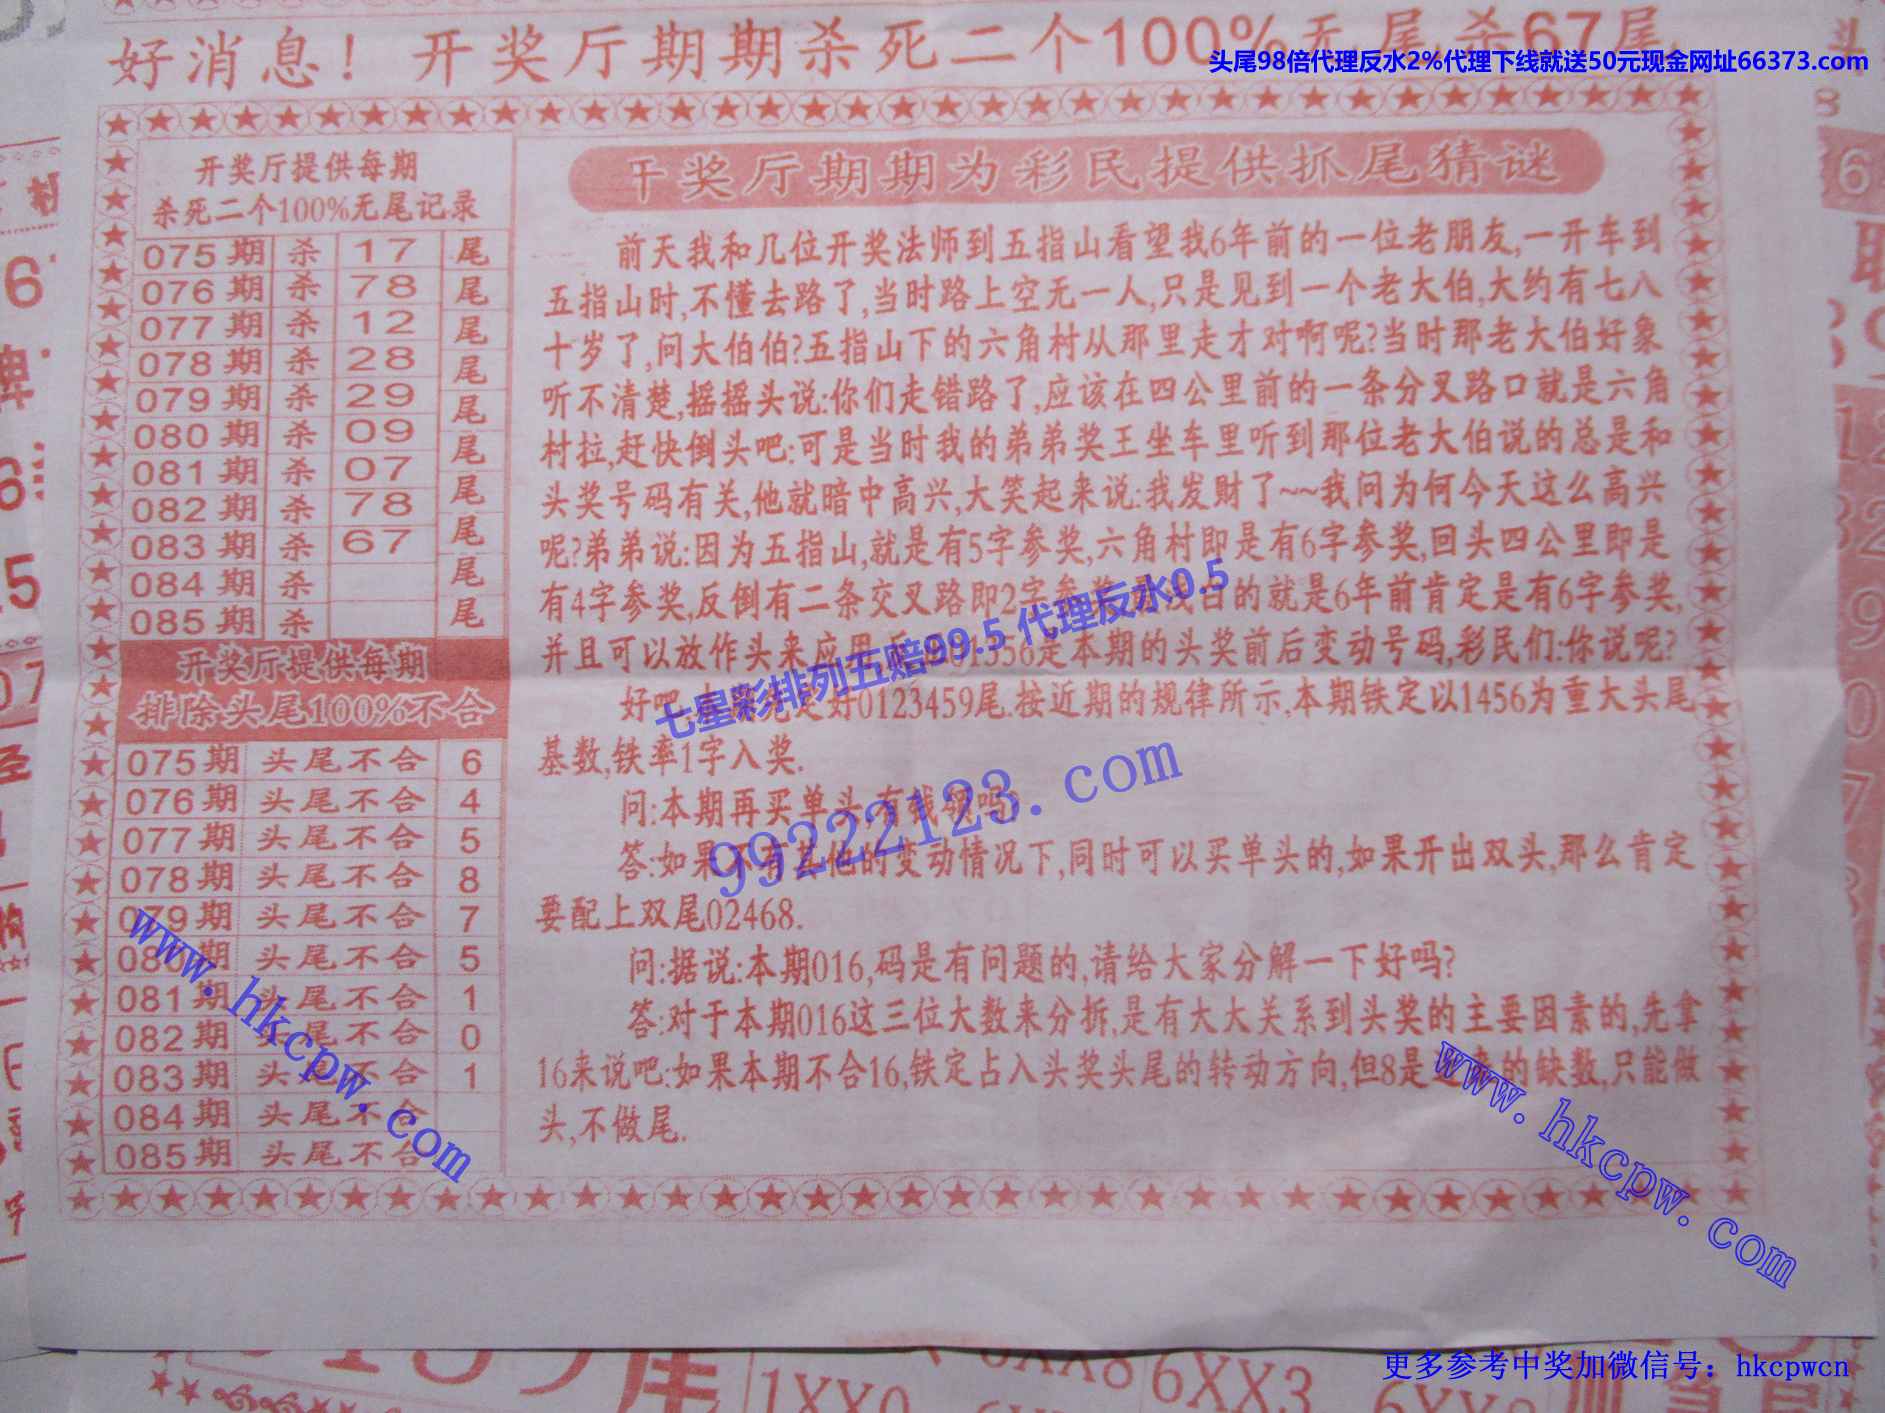 好消息！开奖厅期期杀死二个100%无尾杀67尾
头尾98倍代理反水2%代理下线就送50元现金网址66373.com
开奖厅提供每期
杀死二个100%无尾记录
075期 杀 17 尾
076期 杀 78 尾
077期 杀 12 尾
078期 杀 28 尾
079期 杀 29 尾
080期 杀 09 尾
081期 杀 07 尾
082期 杀 78 尾
083期 杀 67 尾
084期 杀 尾
085期 杀 尾
开奖厅提供每期
排除头尾100%不合
075期 头尾不合 6
076期 头尾不合 4
077期 头尾不合 5
078期 头尾不合 8
079期 头尾不合 7
080期 头尾不合 5
081期 头尾不合 1
082期 头尾不合 0
083期 头尾不合 1
084期 头尾不合
085期 头尾不合
奖厅期期为彩民提供抓尾猜谜
前天我和几位开奖法师到五指山看望我6年前的一位老朋友,一开车到
五指山时,不懂去路了,当时路上空无一人,只是见到一个老大伯,大约有七八
十岁了,问大伯伯?五指山下的六角村从那里走才对啊呢?当时那老大伯好象
听不清楚,摇摇头说:你们走错路了,应该在四公里前的一条分叉路口就是六角
村拉,赶快倒头吧:可是当时我的弟弟奖王坐车里听到那位老大伯说的总是和
头奖号码有关,他就暗中高兴,大笑起来说:我发财了~~我问为何今天这么高兴
呢?弟弟说:因为五指山,就是有5字参奖,六角村即是有6字参奖,回头四公里即是
有4字参奖,反倒有二条交叉路即2字参奖,最浅白的就是6年前肯定是有6字参奖,
并且可以放作头来应用,后01356是本期的头奖前后变动号码,彩民们:你说呢?
好吧,定好0123459尾.按近期的规律所示,本期铁定以1456为重大头尾
基数,铁率1字入奖.
问:本期再买单头,有钱领吗?
答:如果没有其他的变动情况下,同时可以买单头的,如果开出双头,那么肯定
要配上双尾02468.
问:据说:本期016,码是有问题的,请给大家分解一下好吗?
答:对于本期016这三位大数来分拆,是有大大关系到头奖的主要因素的,先拿
16来说吧:如果本期不合16,铁定占入头奖头尾的转动方向,但8是近来的缺数,只能做
头,不做尾.
七星彩排列五赔99.5 代理反水0.5
99222123.com
www.hkcpw.com
www.hkcpw.com
1XX0
6XX8
6XX3
更多参考中奖加微信号：hkcpwcn